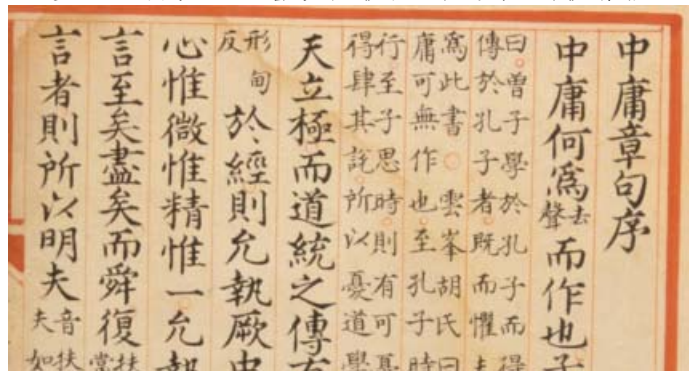 中庸章句序
中庸何爲去聲而作也子
曰曾子學於孔子而得
傳於孔子者既而懼夫
爲此書○雲峯胡氏曰
庸可無作也至孔子時
行至子思時則有可憂
得肆其說所以憂道學
天立極而道統之傳有
形甸反於經則允執厥中
心惟微惟精惟一允執
言至矣盡矣而舜復扶當
言者則所以明夫音扶夫如